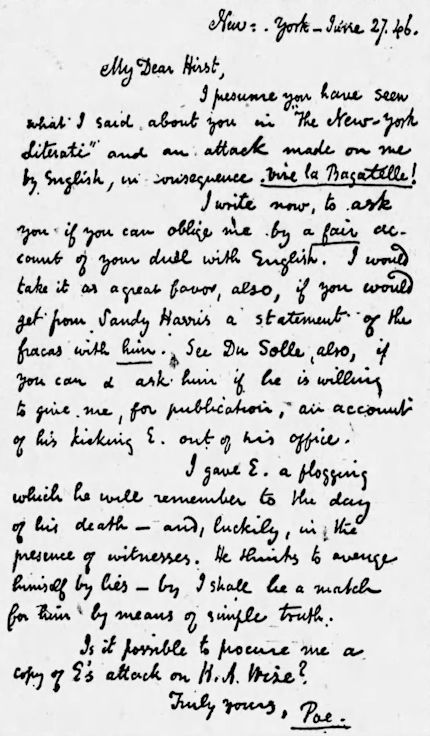 New-York – June 27. 46.
My Dear Hirst,
I presume you have seen
what I said about you in "The New-York
Literati" and an attack made on me
by English, in consequence. Vive la Bagatelle!
I write now, to ask
you if you can oblige me by a fair ac-
count of your duel with English. I would
take it as a great favor, also, if you would
get from Sandy Harris a statement of the
fracas with him. See Du Solle, also, if
you can & ask him if he is willing
to give me, for publication, an account
of his kicking E. out of his office.
I gave E. a flogging
which he will remember to the day
of his death — and, luckily, in the
presence of witnesses. He thinks to avenge
himself by lies — by I shall be a match
for him by means of simple truth.
Is it possible to procure me a
copy of E's attack on H. A. Wise?
Truly yours, Poe.